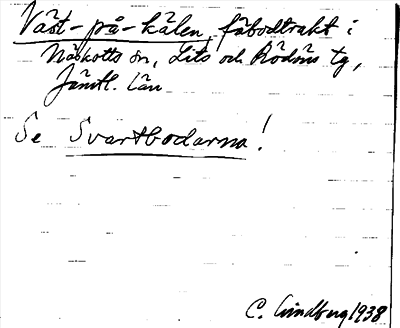 Väst-på-kälen, fäbodtrakt i
Näskotts sn, Lits och Rödöns tg,
Jämtl. län
Se Svartbodarna!
C. Lindberg 1938